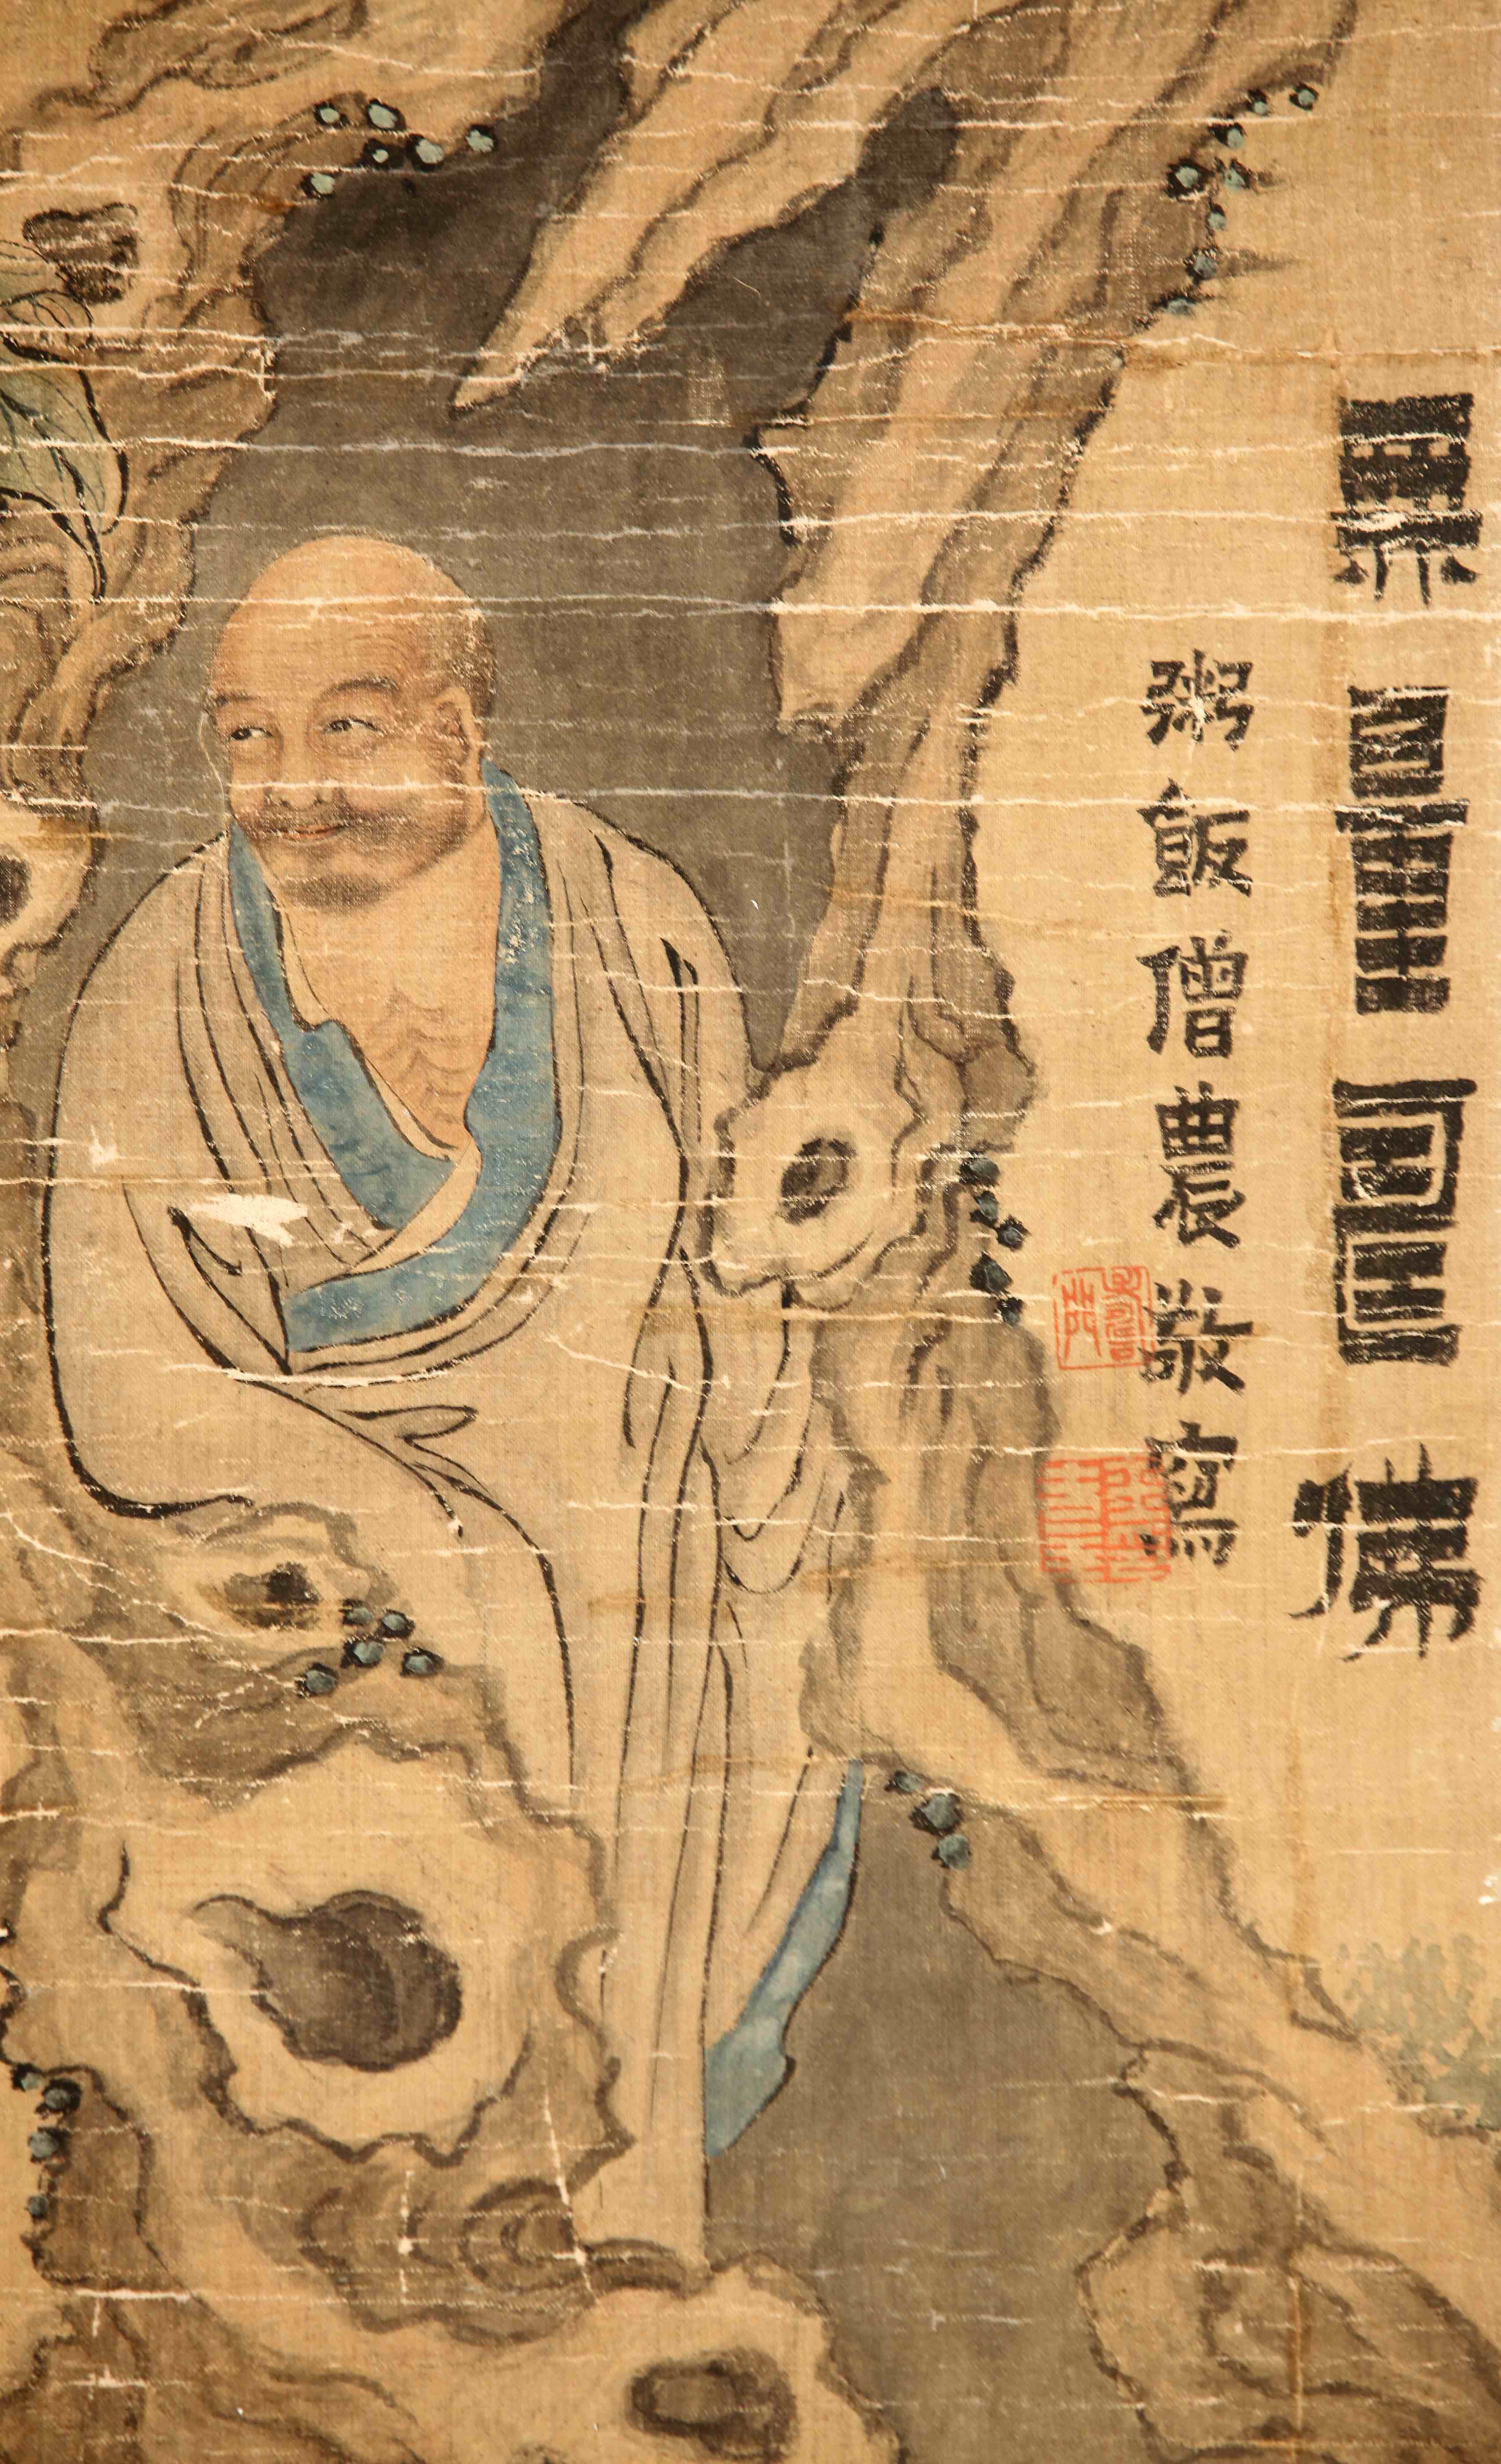 無量壽佛
粥飯僧農敬寫